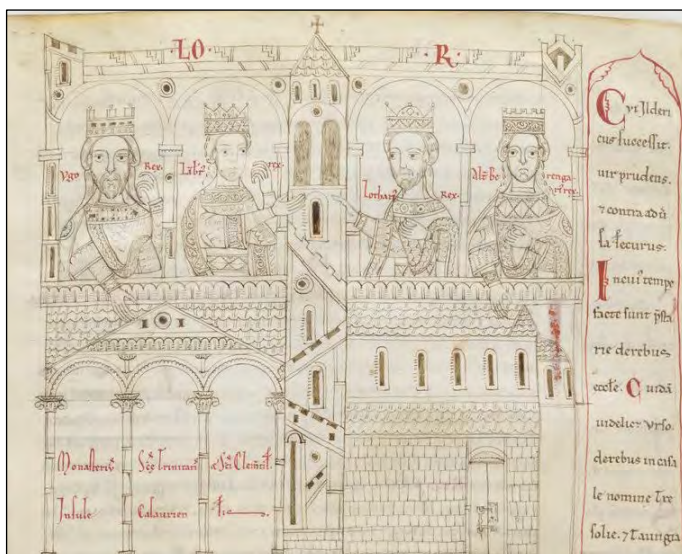 ·LO· ·R·
Vgo Rex.
Lābr' rex.
Lothari' Rex.
Als Be rengari' rex.
Monasteriū Scē Trinitatis & Sci Clemēt'
Insule Casaurien
Cui Ilderi
cus successit.
uir prudens.
⁊ contra adū
sa securus.
In cui' tempe
facte sunt psta
rie derebus
eccle. Cuidā
uidelicet Vrso.
derebus incasa
le nomine Tre
solie. ⁊ Taungia